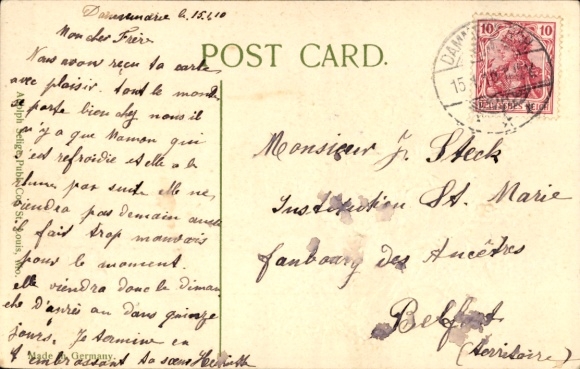 Dammerdie le 15.1.10
Mon cher Frère
Nous avons reçu ta carte
avec plaisir. tout le monde
se porte bien chez nous il
n'y a que Maman qui
s'est refroidie et elle a le
rhume par suite elle ne
viendra pas demain aussi
il fait trop mauvais
pour le moment.
elle viendra donc le diman
che d'après ou dans quinze
jours. Je termine en
t'embrassant ta sœur
POST CARD.
Adolph Selige Publ. Co. St. Louis, Mo.
Made in Germany.
10 10
DEUTSCHES REICH
15
Monsieur J. Steck
Institution St. Marie
faubourg des Ancêtres
Belfort
(territoire)